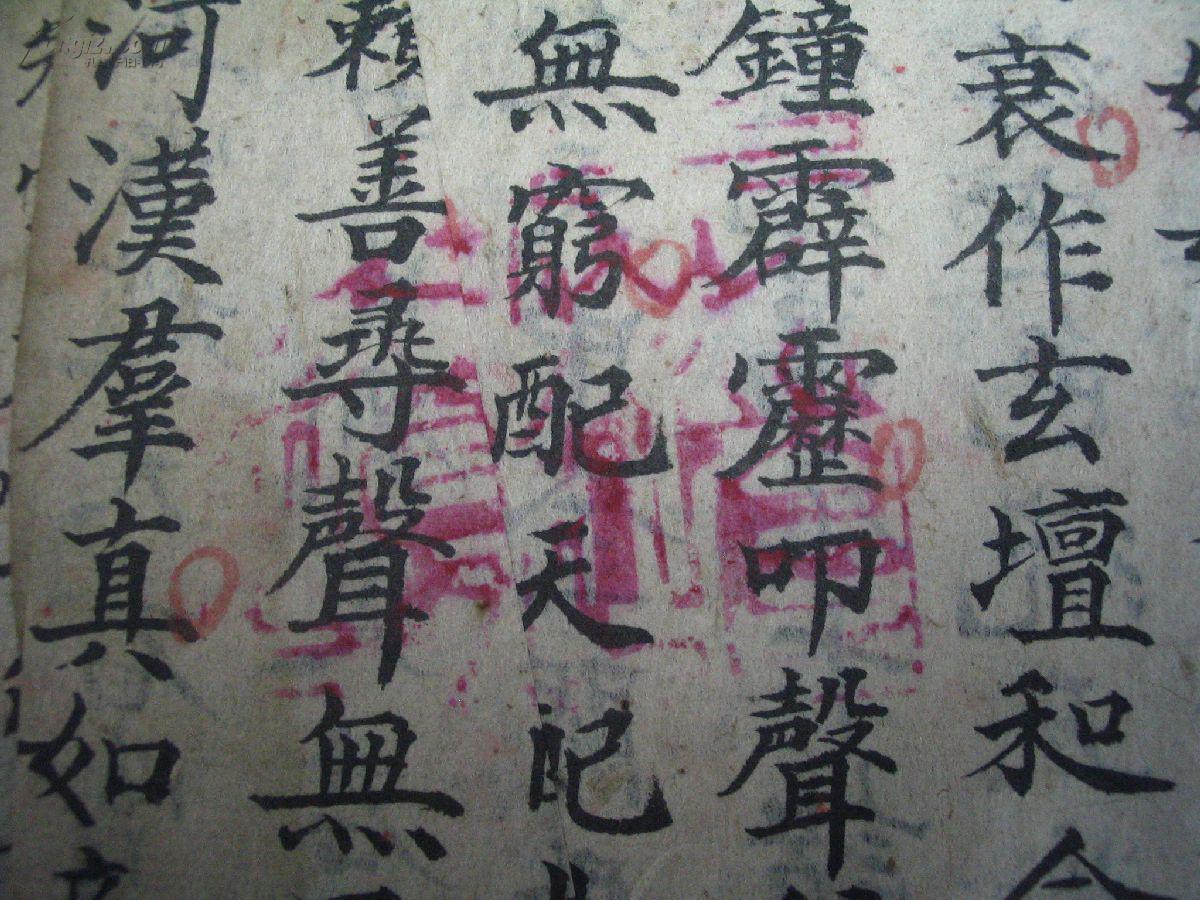 衰作玄壇和令
鐘霹靂叩聲
無窮配天配
賴善尋聲無
河漢羣真如